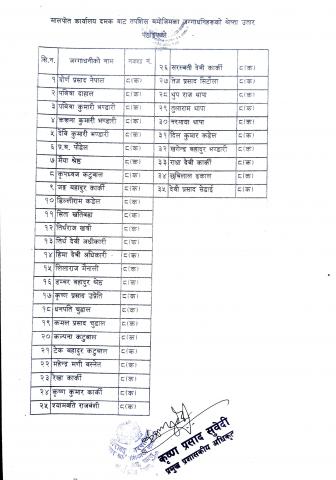 मालपोत कार्यालय दमक बाट तपशिल बमोजिमका जग्गाधनीहरुको श्रेष्ता उतार
सि.न. जग्गाधनीको नाम नक्सा नं.
१ दीर्ण प्रसाद नेपाल ८(क)
२ पबित्रा दाहाल ८(क)
३ पबित्रा कुमारी भण्डारी ८(क)
४ करुणा कुमारी भण्डारी ८(क)
५ देवि कुमारी भण्डारी ८(क)
६ प्र.ब. पौडेल ८(क)
७ मैया श्रेष्ठ ८(क)
८ कृपाध्वज कटुवाल ८(क)
९ जङ्ग बहादुर कार्की ८(क)
१० डिल्लीराम कडेल ८(क)
११ सिता खतिवडा ८(क)
१२ तिर्थराज खत्री ८(क)
१३ तिर्थ देवी अधीकारी ८(क)
१४ हिमा देवी अधिकारी ८(क)
१५ लिलाराज मैनाली ८(क)
१६ डम्बर बहादुर श्रेष्ठ ८(क)
१७ कृष्ण प्रसाद उप्रेति ८(क)
१८ धनपति चुडाल ८(क)
१९ कमल प्रसाद चुडाल ८(क)
२० कल्पना कटुवाल ८(क)
२१ टेक बहादुर कटुवाल ८(क)
२२ महेन्द्र मणी बस्नेत ८(क)
२३ रेखा कार्की ८(क)
२४ कृष्ण कुमार कार्की ८(क)
२५ श्यामवति राजबंशी ८(क)
२६ सरस्वती देवी कार्की ८(क)
२७ तेज प्रसाद सिटौला ८(क)
२८ धुप राज थापा ८(क)
२९ तुलाराम थापा ८(क)
३० नरमाया थापा ८(क)
३१ दिल कुमार कडेल ८(क)
३२ खगेन्द्र बहादुर भण्डारी ८(क)
३३ राधा देवी कार्की ८(क)
३४ छबिलाल ढकाल ८(क)
३५ देवी प्रसाद सेढाई ८(क)
कृष्ण प्रसाद सुवेदी
प्रमुख प्रशासकीय अधिकृत